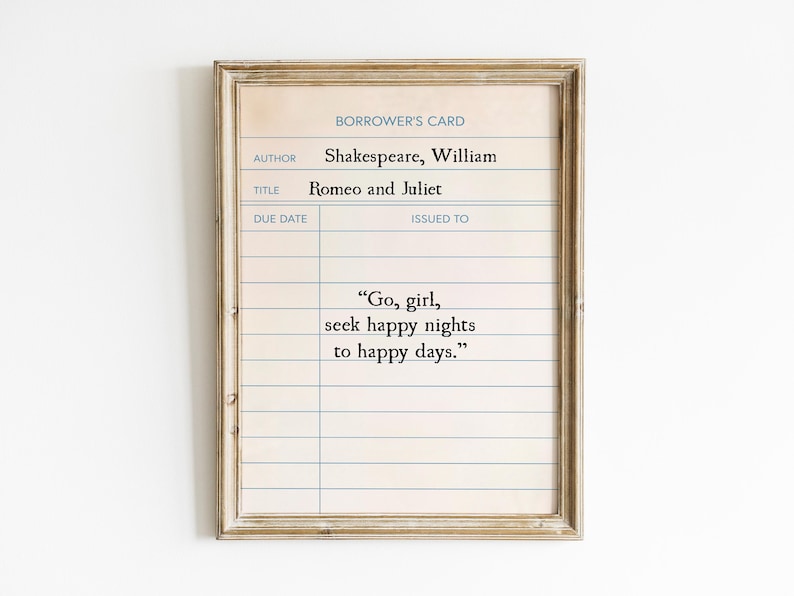 BORROWER'S CARD
AUTHOR Shakespeare, William
TITLE Romeo and Juliet
DUE DATE ISSUED TO
“Go, girl,
seek happy nights
to happy days.”